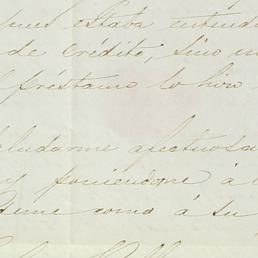 pues estaba entend
de crédito, sino un
préstamo lo hizo
saludarme afectuosa
y poniéndome á
tiene como á su